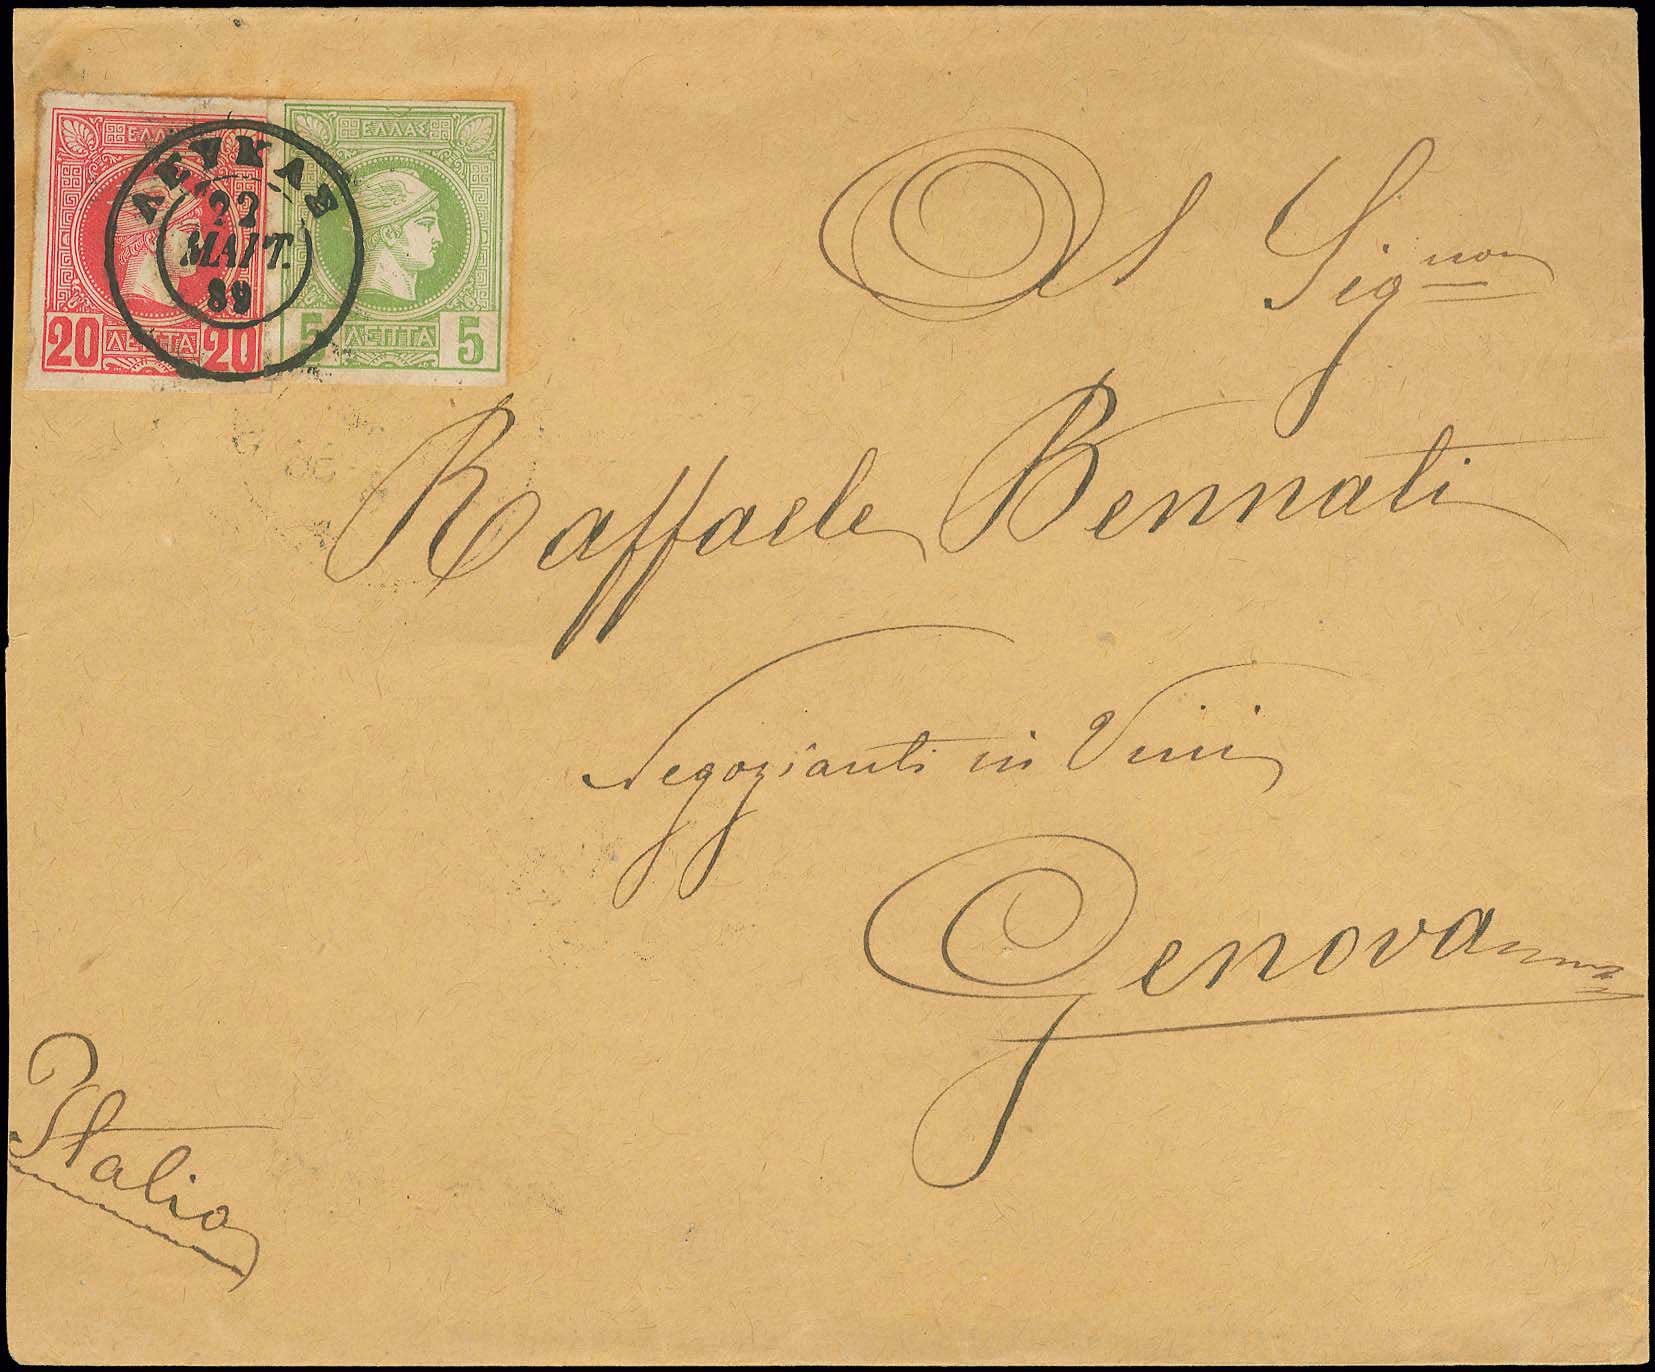 ΕΛΛΑΣ
20 ΛΕΠΤΑ 20
ΕΛΛΑΣ
5 ΛΕΠΤΑ 5
ΛΕΥΚΑΣ
22
ΜΑΪΤ.
89
Al Sig.nor
Raffaele Bennati
Negozianti in Vini
Genova
Italia